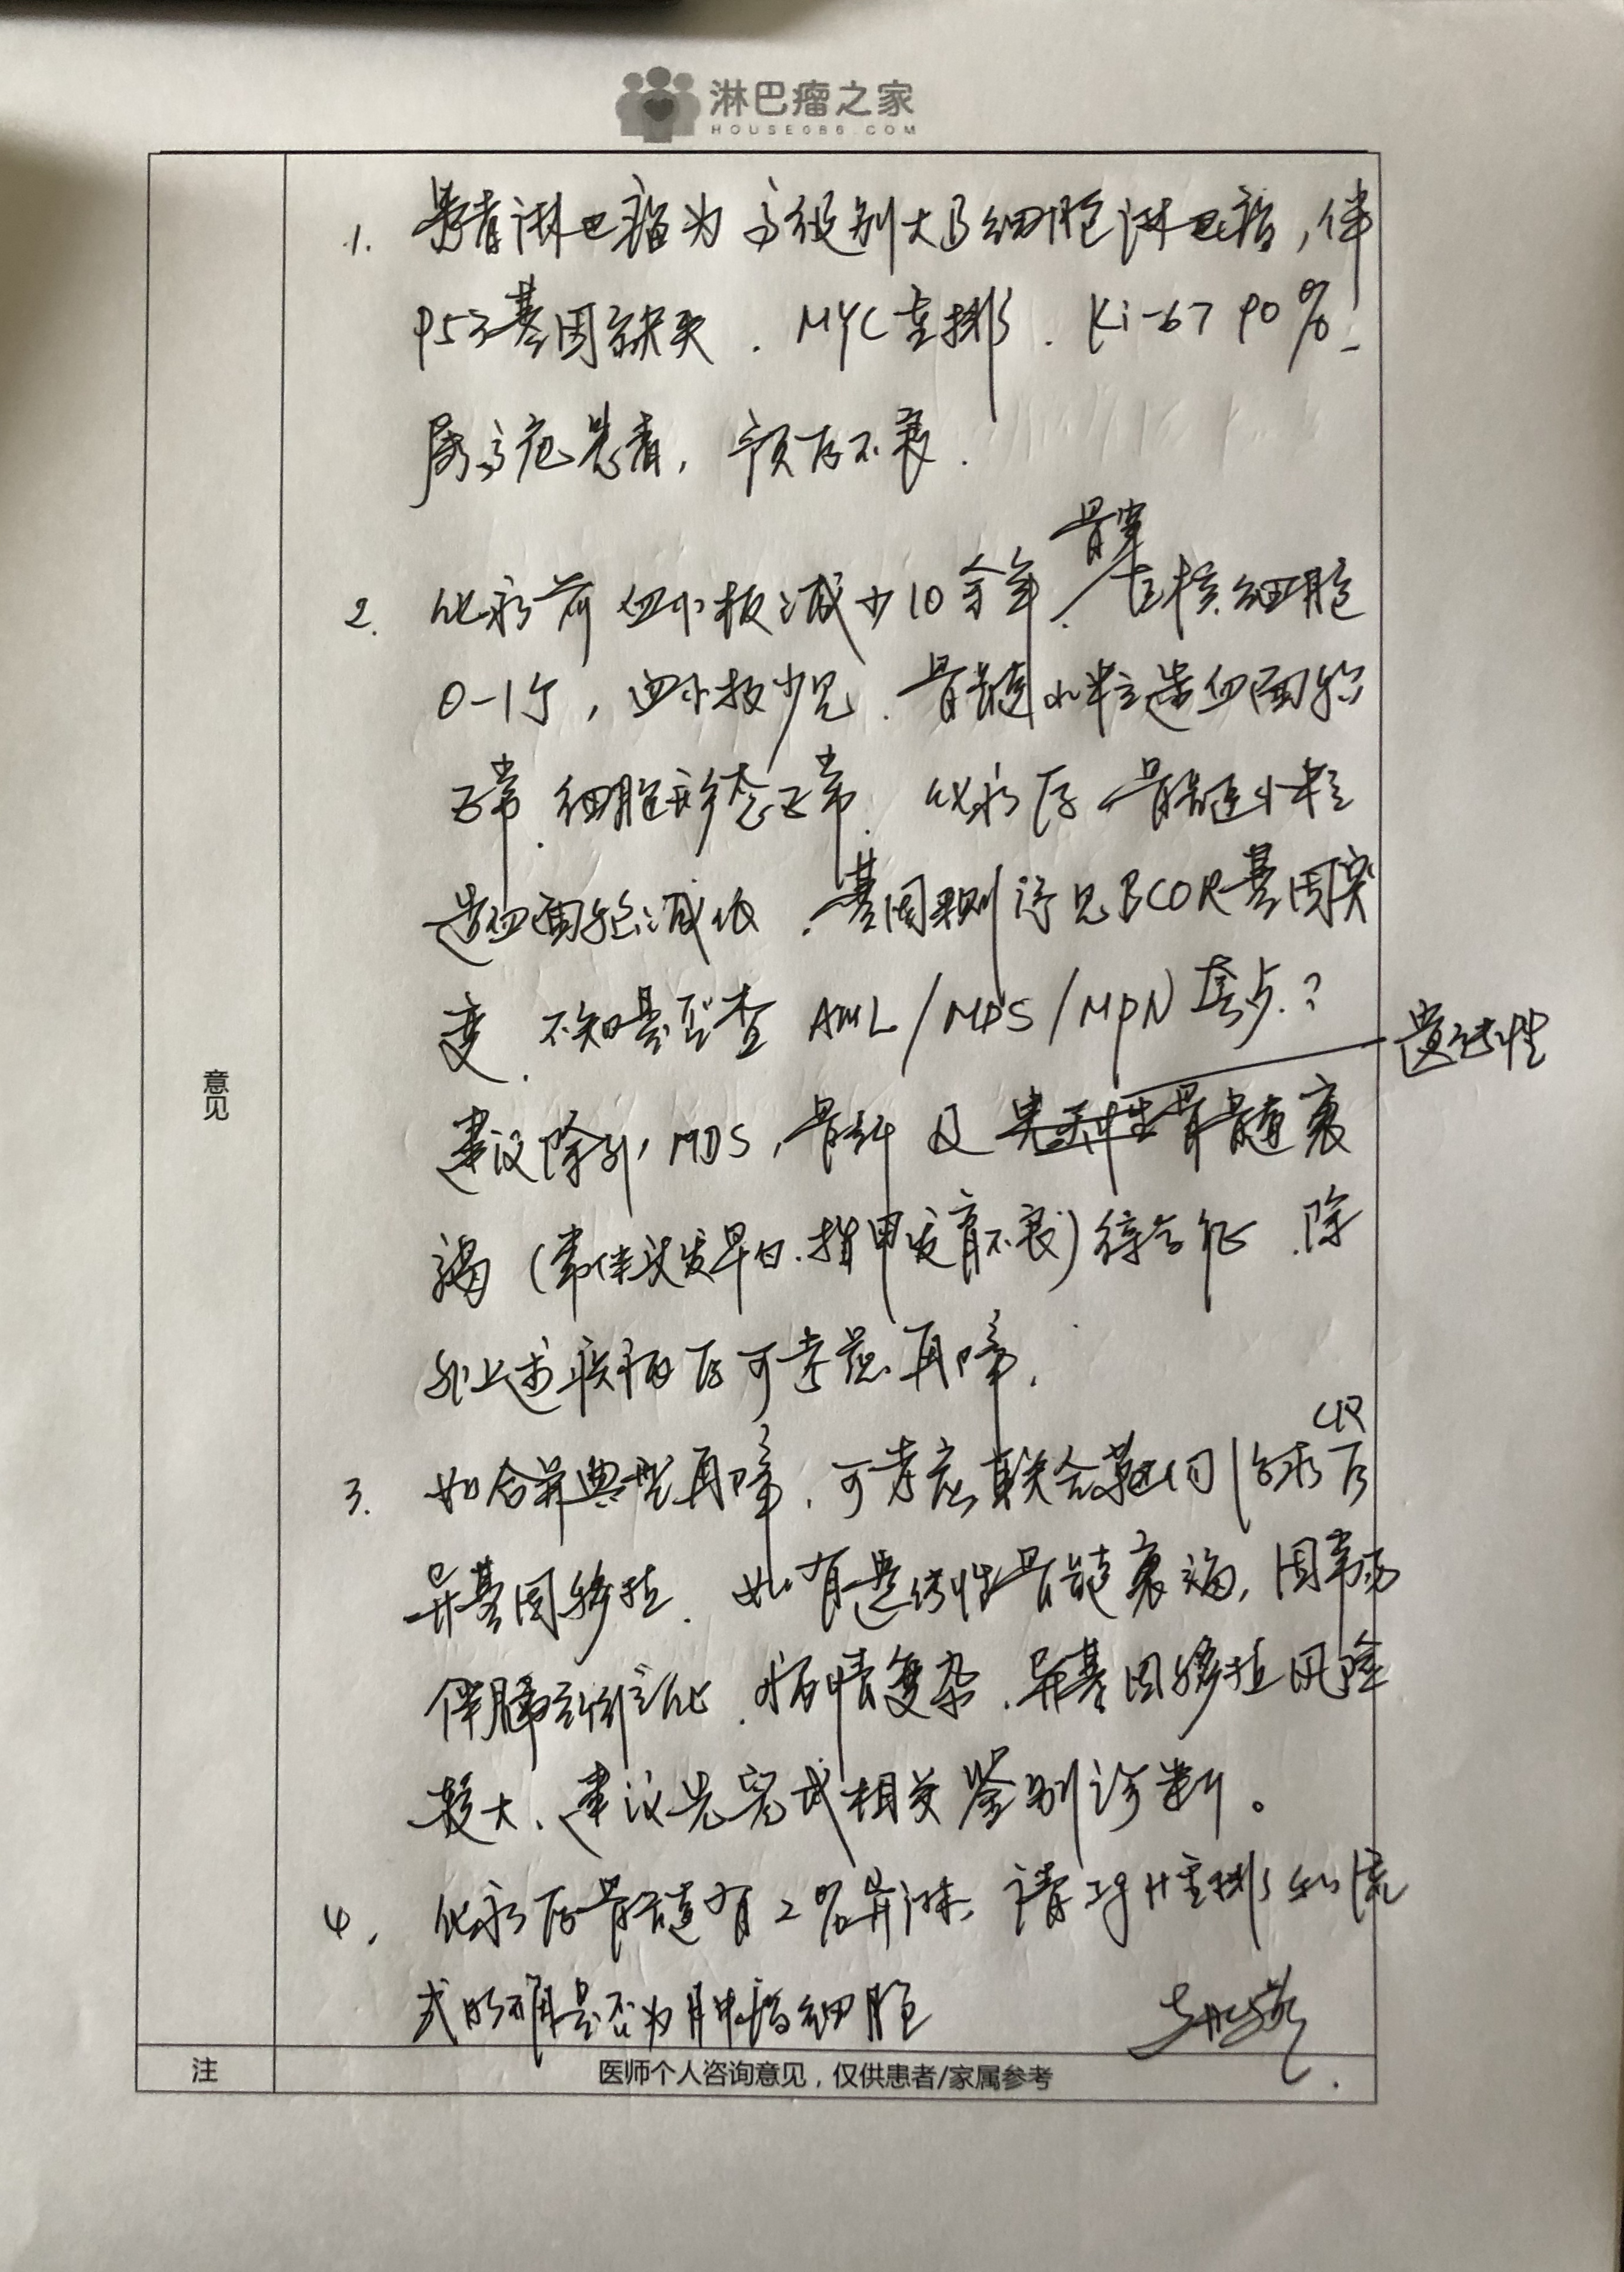 淋巴瘤之家
HOUSE086.COM
1. 患者淋巴瘤为高级别大B细胞淋巴瘤，伴
P53基因缺失．MYC重排．Ki-67 90%．
属高危患者，预后不良．
骨髓
2. 化疗前血小板减少10余年．巨核细胞
0-1个，血小板少见．骨髓小粒造血面积
正常．细胞形态正常．化疗后骨髓小粒
造血面积减低．基因测序见BCOR基因突
变．不知是否查 AML/MDS/MPN 套点？
遗传性
建议除外MDS，骨纤及先天性骨髓衰
竭（常伴头发早白．指甲发育不良）综合征．除
外上述疾病后可考虑再障．
CR
3. 如合并典型再障，可考虑联合靶向治疗后
异基因移植．如有遗传性骨髓衰竭，因常易
伴肺纤维化．病情复杂．异基因移植风险
较大．建议先完成相关鉴别诊断。
4. 化疗后骨髓有2%异淋．请IgH重排和流
式明确是否为肿瘤细胞
意见
注
医师个人咨询意见，仅供患者/家属参考